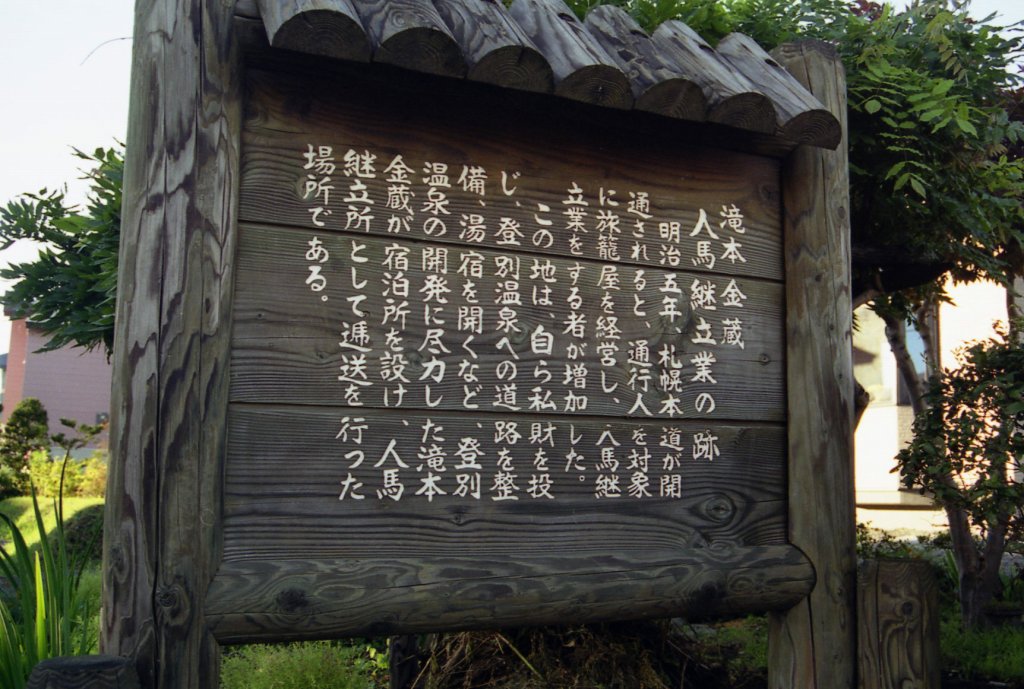 滝本金蔵
人馬継立業の跡
明治五年、札幌本道が開
通されると、通行人を対象
に旅籠屋を経営し、人馬継
立業をする者が増加した。
この地は、自ら私財を投
じ、登別温泉への道路を整
備、湯宿を開くなど、登別
温泉の開発に尽力した滝本
金蔵が宿泊所を設け、人馬
継立所として逓送を行った
場所である。